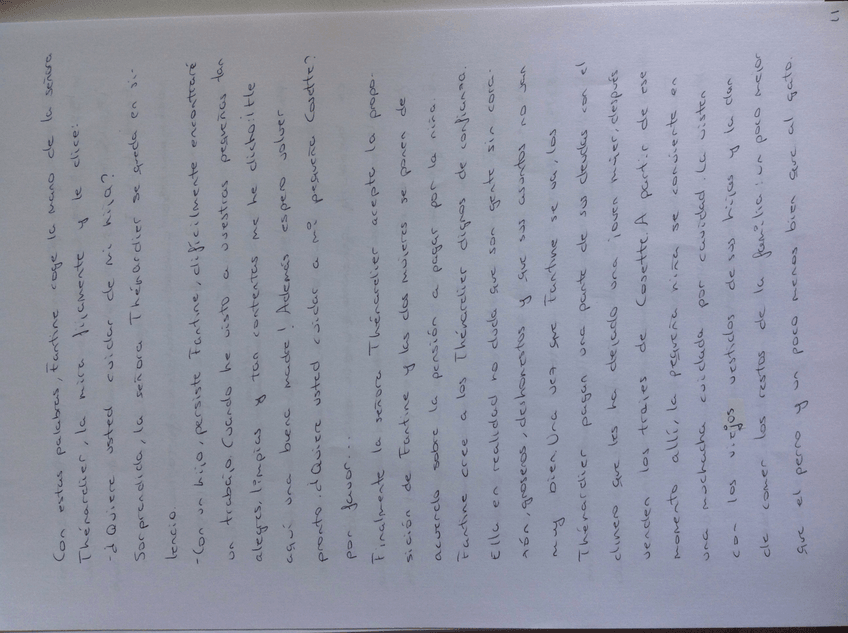 Con estas palabras, Fantine coge la mano de la señora
Thénardier, la mira fijamente y le dice:
- ¿Quiere usted cuidar de mi hija?
Sorprendida, la señora Thénardier se queda en si-
lencio.
- Con un hijo, persiste Fantine, dificilmente encontraré
un trabajo. Cuando he visto a vuestras pequeñas tan
alegres, limpias y tan contentas me he dicho: ¡He
aquí una buena madre! Además espero volver
pronto. ¿Quiere usted cuidar a mi pequeña Cosette?
por favor...
Finalmente la señora Thénardier acepta la propo-
sición de Fantine y las dos mujeres se ponen de
acuerdo sobre la pensión a pagar por la niña.
Fantine cree a los Thénardier dignos de confianza.
Ella en realidad no duda que son gente sin cora-
zón, groseros, deshonestos y que sus asuntos no van
muy bien. Una vez que Fantine se va, los
Thénardier pagan una parte de sus deudas con el
dinero que les ha dejado una joven mujer, después
venden los trajes de Cosette. A partir de ese
momento allí, la pequeña niña se convierte en
una muchacha cuidada por caridad. La visten
con los viejos vestidos de sus hijas y la dan
de comer los restos de la familia: un poco mejor
que el perro y un poco menos bien que al gato.
11